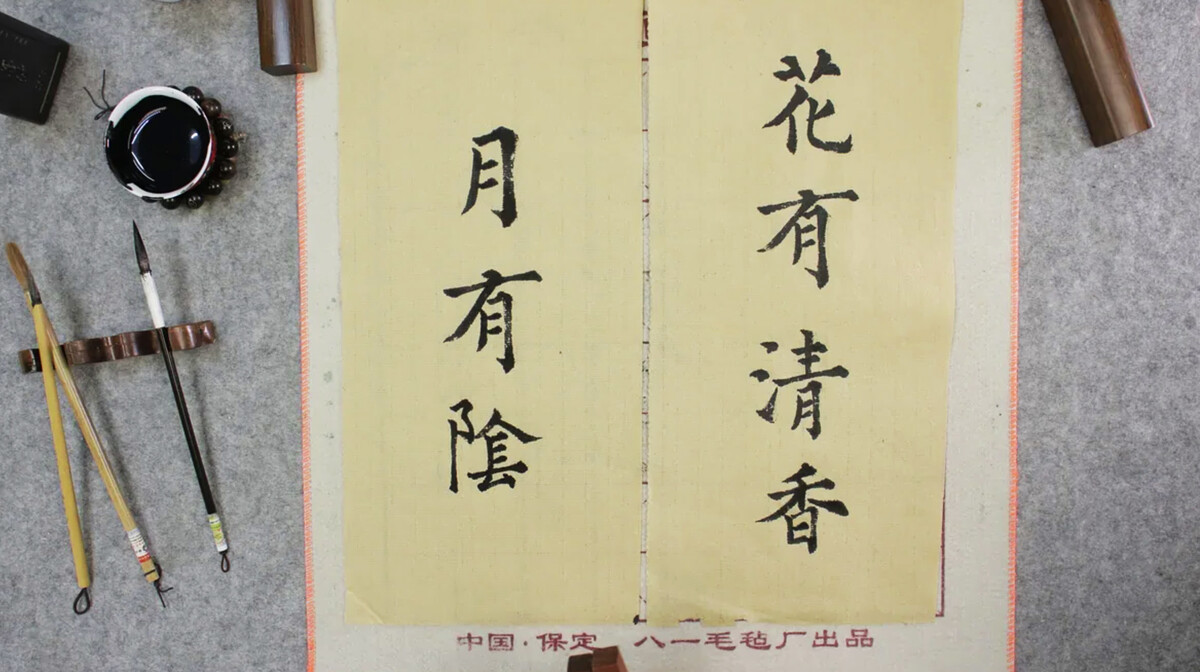 花有清香
月有陰
中国·保定 八一毛毡厂出品